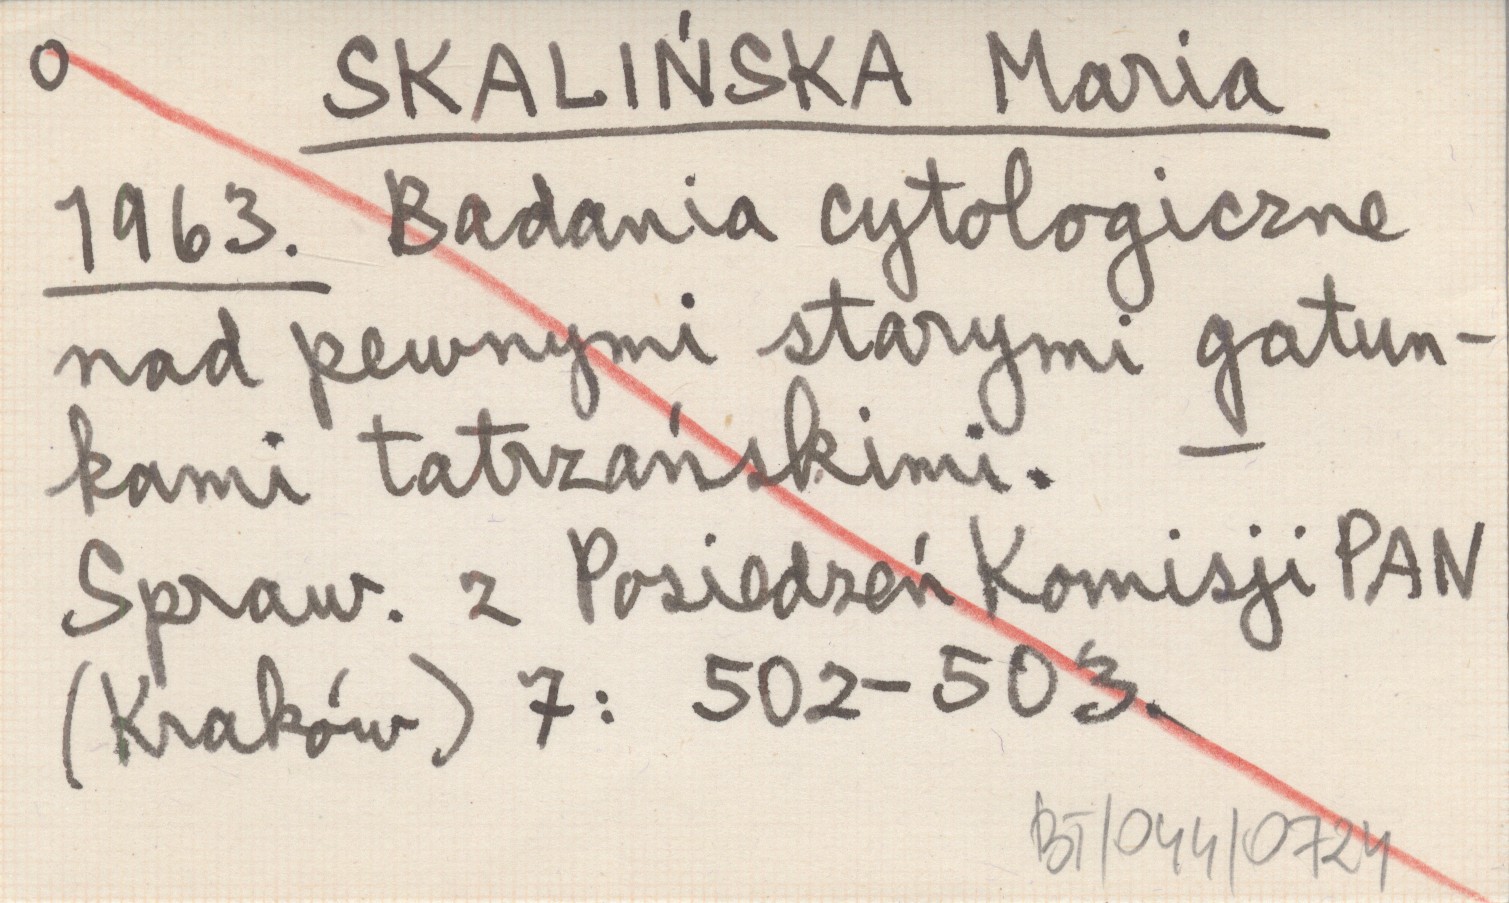 O SKALIŃSKA Maria
1963. Badania cytologiczne
nad pewnymi starymi gatun-
kami tatrzańskimi. —
Spraw. z Posiedzeń Komisji PAN
(Kraków) 7: 502-503.
BT/044/0724